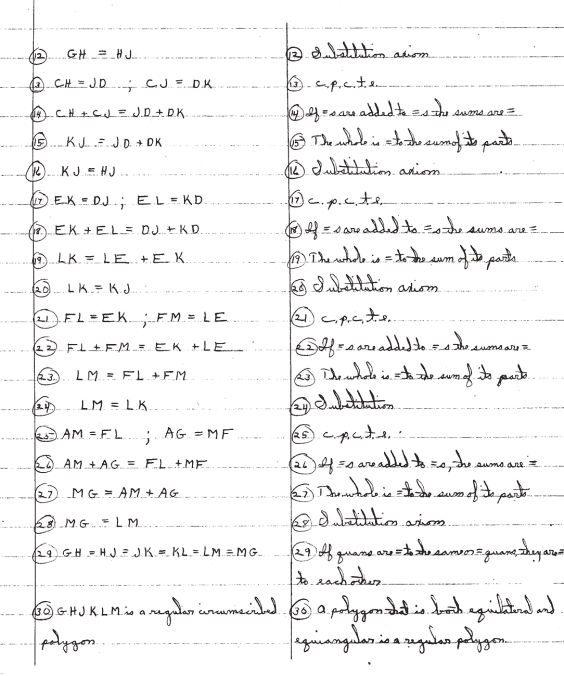 (12) GH = HJ (12) Substitution axiom
(13) CH = JD ; CJ = DK (13) c.p.c.t.e.
(14) CH + CJ = JD + DK (14) If =s are added to =s the sums are =
(15) KJ = JD + DK (15) The whole is = to the sum of its parts
(16) KJ = HJ (16) Substitution axiom
(17) EK = DJ ; EL = KD (17) c.p.c.t.e.
(18) EK + EL = DJ + KD (18) If =s are added to =s the sums are =
(19) LK = LE + EK (19) The whole is = to the sum of its parts
(20) LK = KJ (20) Substitution axiom
(21) FL = EK ; FM = LE (21) c.p.c.t.e.
(22) FL + FM = EK + LE (22) If =s are added to =s the sums are =
(23) LM = FL + FM (23) The whole is = to the sum of its parts
(24) LM = LK (24) Substitution
(25) AM = FL ; AG = MF (25) c.p.c.t.e.
(26) AM + AG = FL + MF (26) If =s are added to =s, the sums are =
(27) MG = AM + AG (27) The whole is = to the sum of its parts
(28) MG = LM (28) Substitution axiom
(29) GH = HJ = JK = KL = LM = MG (29) If quans are = to the same or = quans, they are =
to each other
(30) GHJKLM is a regular circumscribed (30) A polygon that is both equilateral and
polygon equiangular is a regular polygon.